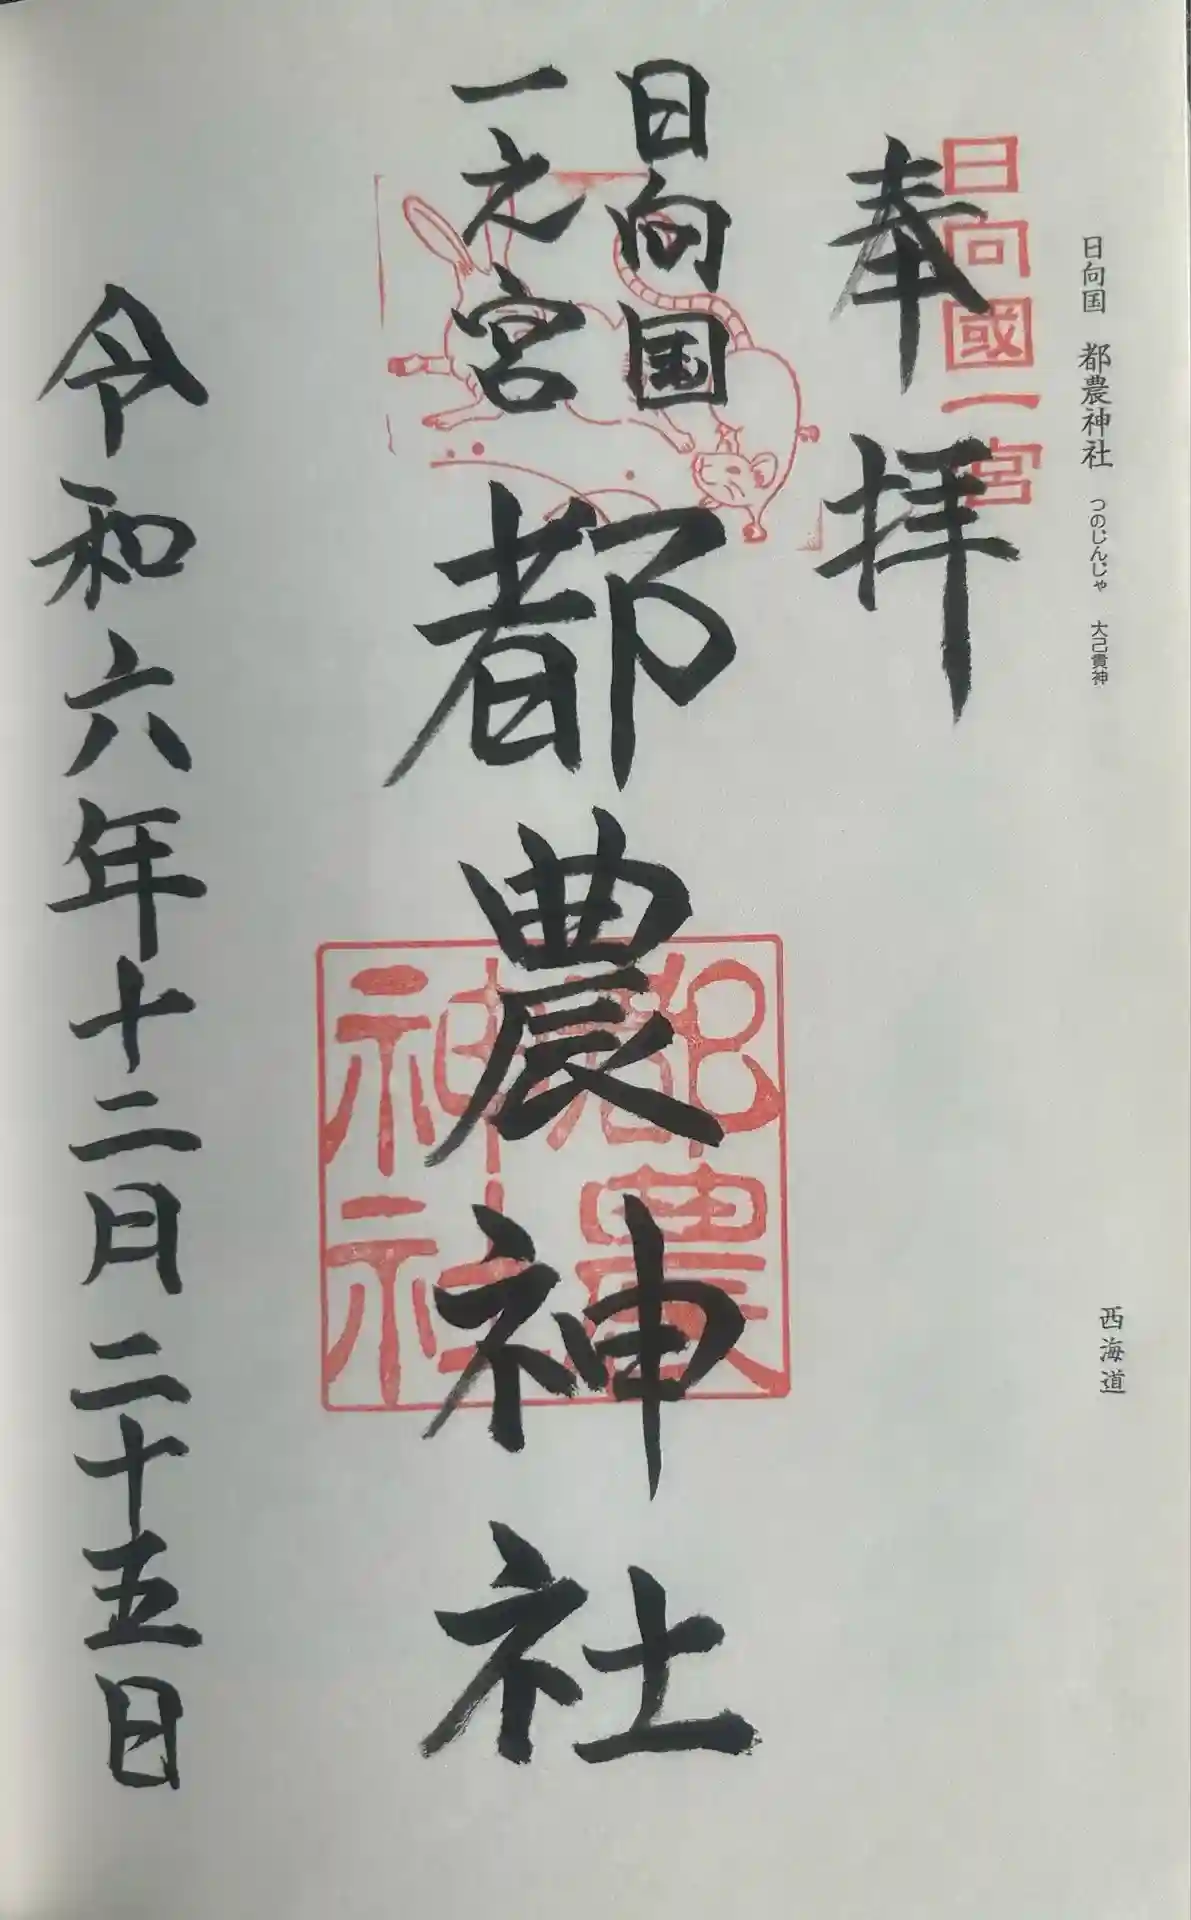 日向国 都農神社 つのじんじゃ 大己貴神
西海道
日向國一宮
奉拝
日向国
一之宮
都農神社
都農
神社
令和六年十二月二十五日